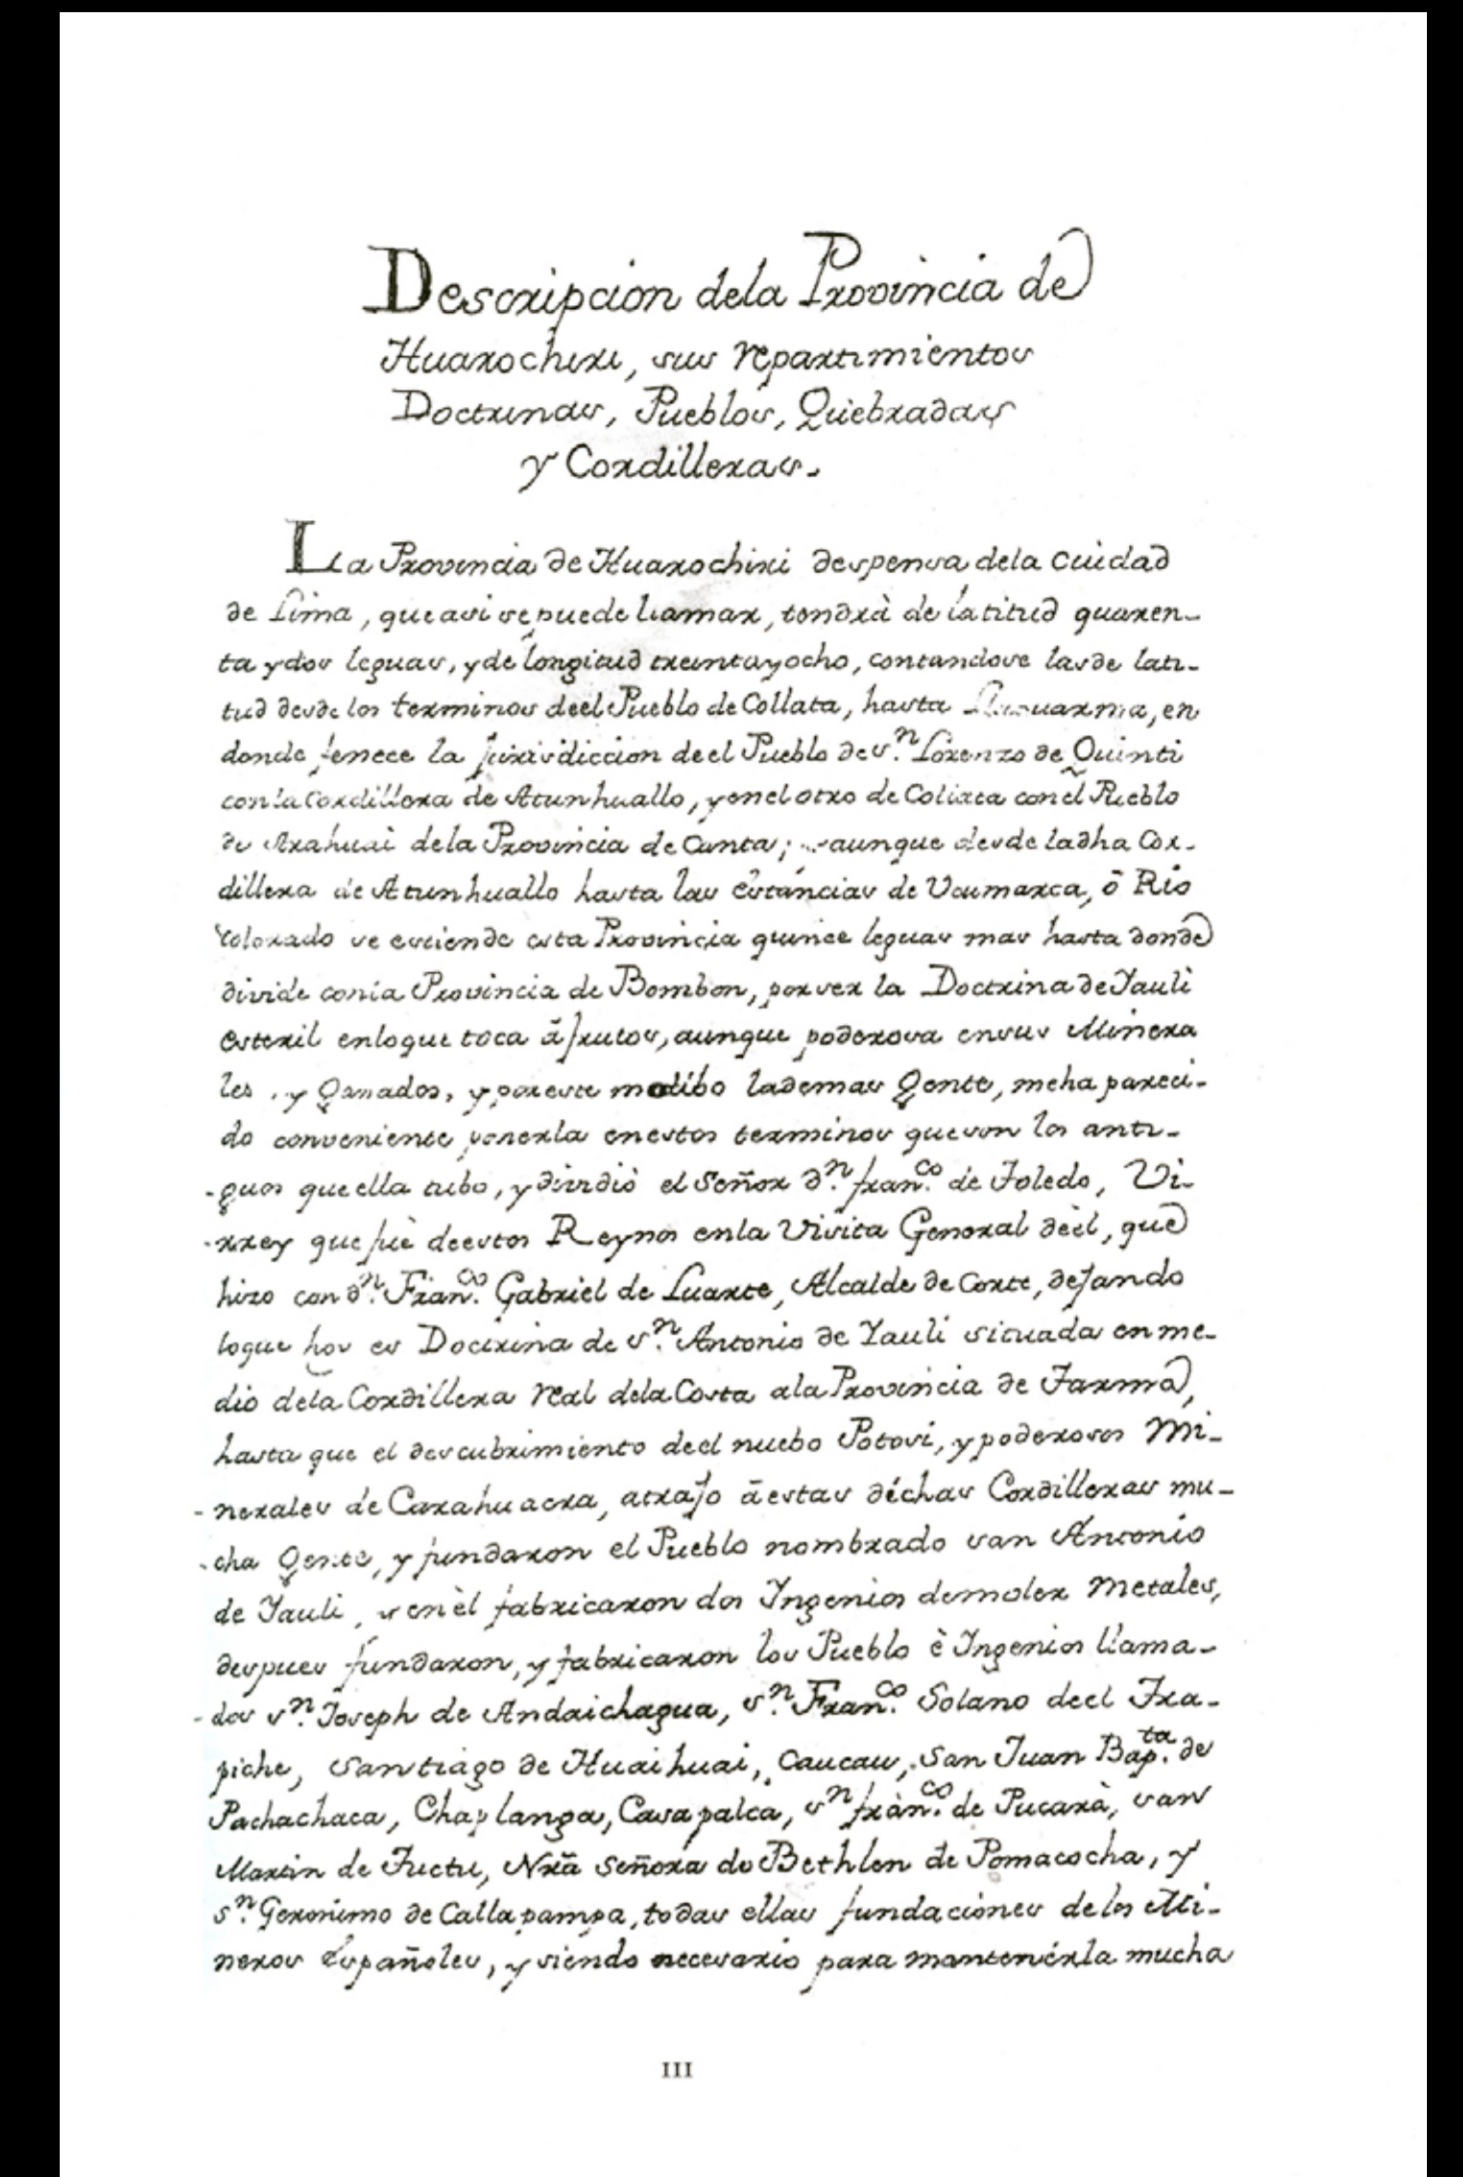 Descripcion dela Provincia de
Huarochiri, sus repartimientos
Doctrinas, Pueblos, Quebradas
y Cordilleras.
La Provincia de Huarochiri despensa dela Ciudad
de Lima, que asi se puede llamar, tendrà de latitud quaren-
ta y dos leguas, y de longitud treinta y ocho, contandose las de lati-
tud desde los terminos deel Pueblo de Collata, hasta en
donde fenece la jurisdiccion de el Pueblo de sn. Lorenzo de Quinti
con la Cordillera de Atunhuallo, y en el otro de Coliaca con el Pueblo
de Arahuai dela Provincia de Canta; aunque desde la dha Cor-
dillera de Atunhuallo hasta las estáncias de Ucumarca, ô Rio
Colorado se estiende esta Provincia quince leguas mas hasta donde
divide con la Provincia de Bombon, por ser la Doctrina de Yauli
esteril en lo que toca ã frutos, aunque poderosa en sus Minera
les, y Ganados, y por este motibo la demas Gente, me ha pareci-
do conveniente ponerla en estos terminos que son los anti-
-guos que ella tubo, y dividiò el Señor dn. franco. de Toledo, Vi-
-rrey que fuè de estos Reynos en la Visita General deèl, que
hizo con dn. Franco. Gabriel de Luarte, Alcalde de Corte, dejando
loque hoy es Doctrina de sn. Antonio de Yauli situada en me-
dio dela Cordillera real dela Costa ala Provincia de Tarma,
hasta que el descubrimiento deel nuebo Potosi, y poderosos Mi-
-nerales de Carahuacra, atrajo ã estas dichas Cordilleras mu-
-cha Gente, y fundaron el Pueblo nombrado san Antonio
de Yauli, y en èl fabricaron dos Ingenios demoler Metales,
despues fundaron, y fabricaron los Pueblo è Ingenios llama-
-dos sn. Joseph de Andaichagua, sn. Franco. Solano deel Tra-
piche, Santiago de Huaihuai, Caucau, San Juan Bapta. de
Pachachaca, Chaplanga, Casapalca, sn franco. de Pucarà, san
Martin de Tuctu, Nrã Señora de Bethlen de Pomacocha, y
sn. Geronimo de Callapampa, todas ellas fundaciónes de los Mi-
neros Españoles, y siendo necesario para mantenérla mucha
III